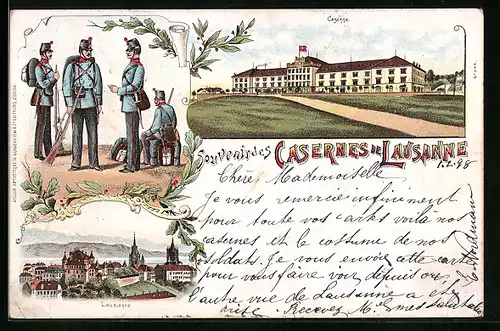 Caserne
Souvenir des CASERNES DE LAUSANNE
1.2.98
Chère Mademoiselle
Je vous remercie infiniment
pour toutes vos cartes voilà nos
casernes et le costume de nos
soldats. Je vous envoie cette carte
pour vous faire voir depuis
l'autre vue de Lausanne a été
prise. Recevez M. mes salutations
LAUSANNE